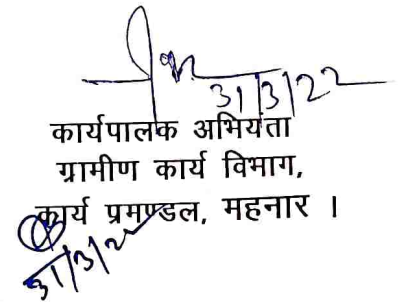 31/3/22
कार्यपालक अभियंता
ग्रामीण कार्य विभाग,
कार्य प्रमण्डल, महनार ।
31/3/22